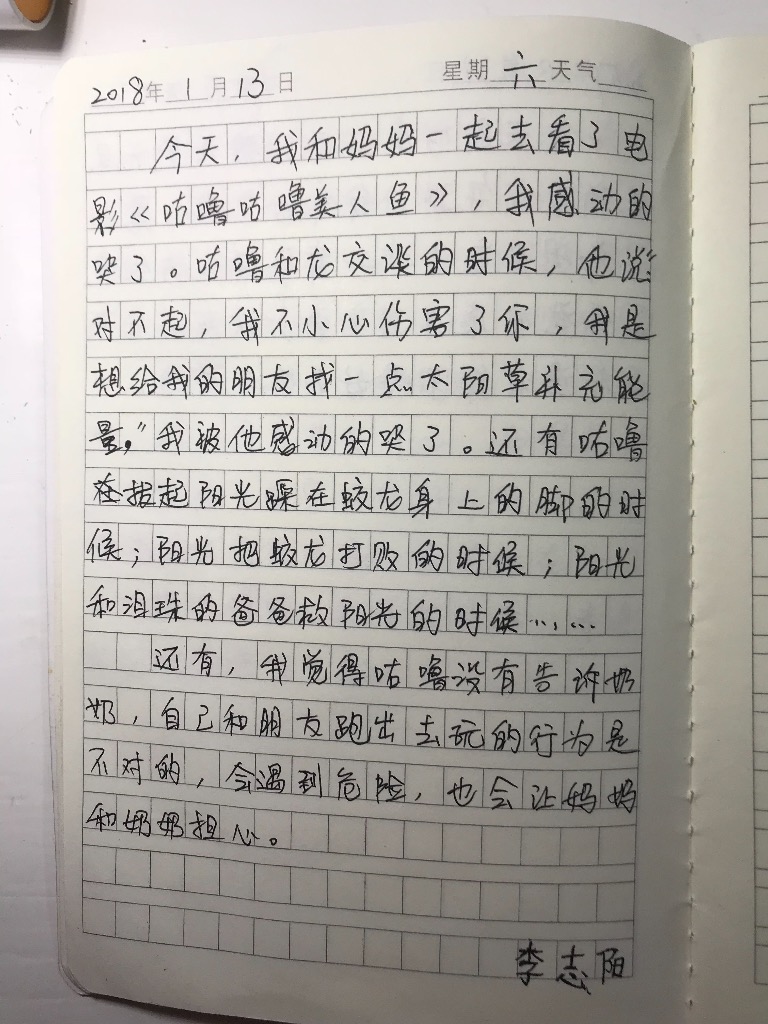 2018年1月13日 星期六天气
今天，我和妈妈一起去看了电
影《咕噜咕噜美人鱼》，我感动的
哭了。咕噜和龙交谈的时候，他说：“
对不起，我不小心伤害了你，我是
想给我的朋友找一点太阳草补充能
量。”我被他感动的哭了。还有咕噜
在抬起阳光踩在蛟龙身上的脚的时
候；阳光把蛟龙打败的时候；阳光
和泪珠的爸爸救阳光的时候……
还有，我觉得咕噜没有告诉奶
奶，自己和朋友跑出去玩的行为是
不对的，会遇到危险，也会让妈妈
和奶奶担心。
李志阳